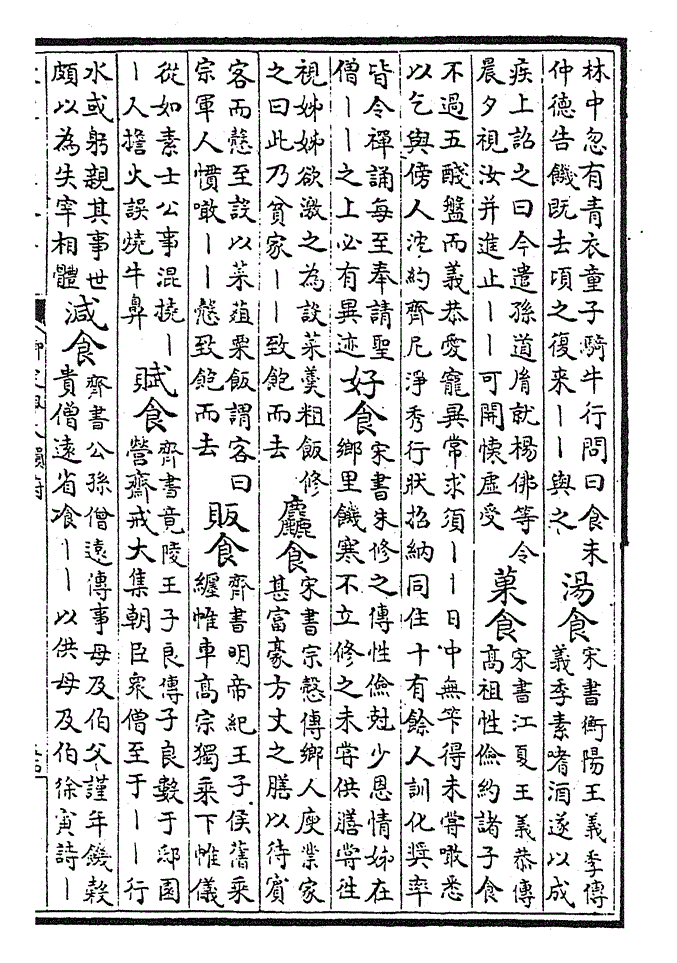 林中忽有青衣童子騎牛行問曰食未
仲德告饑既去頃之復来丨丨與之
湯食
宋書衡陽王義季傳
義季素嗜酒遂以成
疾上詔之曰今遣孫道胤就楊佛等令
晨夕視汝并進止丨丨可開懐虛受
菓食
宋書江夏王義恭傳
高祖性儉約諸子食
不過五醆盤而義恭愛寵異常求須丨丨日中無筭得未嘗噉悉
以乞與傍人沈約齊尼淨秀行狀招納同住十有餘人訓化奨率
皆令禪誦每至奉請聖
僧丨丨之上必有異迹
好食
宋書朱修之傳性儉尅少恩情姊在
鄉里饑寒不立修之未嘗供膳嘗徃
視姊姊欲激之為設菜羮粗飯修
之曰此乃貧家丨丨致飽而去
麤食
宋書宗慤傳鄉人庾業家
甚富豪方丈之膳以待賓
客而慤至設以菜葅粟飯謂客曰
宗軍人慣噉丨丨慤致飽而去
販食
齊書明帝紀王子侯舊乘
纏帷車高宗獨乘下帷儀
從如素士公事混撓丨
丨人擔火誤燒牛鼻
賦食
齊書竟陵王子良傳子良數于邸園
營齋戒大集朝臣衆僧至于丨丨行
水或躬親其事世
頗以為失宰相體
減食
齊書公孫僧遠傳事母及伯父謹年饑榖
貴僧遠省飡丨丨以供母及伯徐寅詩丨